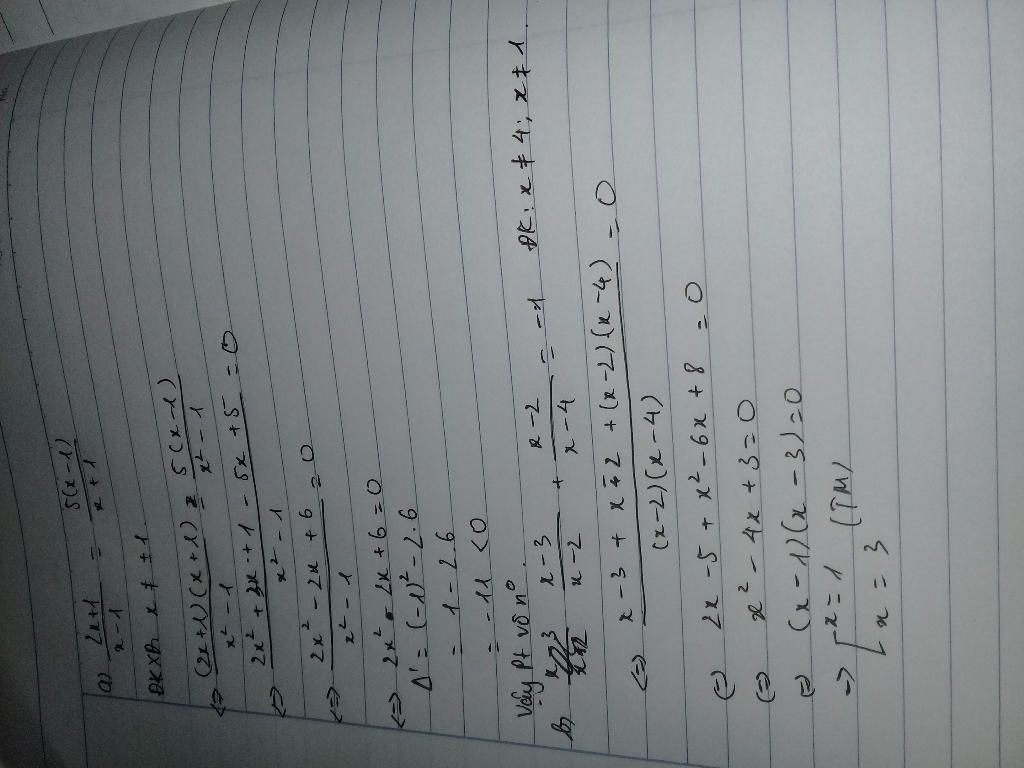 a) (2x+1)/(x-1) = 5(x-1)/(x+1)
ĐKXĐ. x ≠ ±1.
<=> (2x+1)(x+1)/(x²-1) = 5(x-1)/(x²-1)
<=> (2x²+3x+1-5x+5)/(x²-1) = 0
<=> (2x²-2x+6)/(x²-1) = 0
<=> 2x²-2x+6=0
Δ' = (-1)²-2.6
= 1-2.6
= -11 <0
Vậy pt vô n⁰.
b, (x-3)/(x-2) + (x-2)/(x-4) = -1 ĐK: x ≠ 4; x ≠ 1
<=> (x-3 + x-2 + (x-2)(x-4))/((x-2)(x-4)) = 0
(=) 2x-5 + x²-6x+8 = 0
(=) x²-4x+3=0
(=) (x-1)(x-3)=0
=> [x=1 (TM)
[x=3